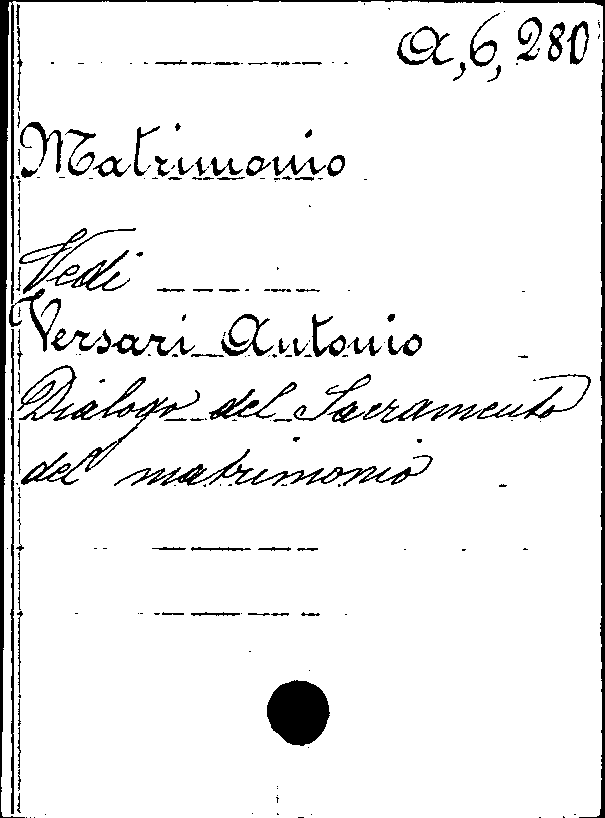 A, 6, 280
Matrimonio
Vedi
Versari Antonio
Dialogo del Sacramento
del matrimonio